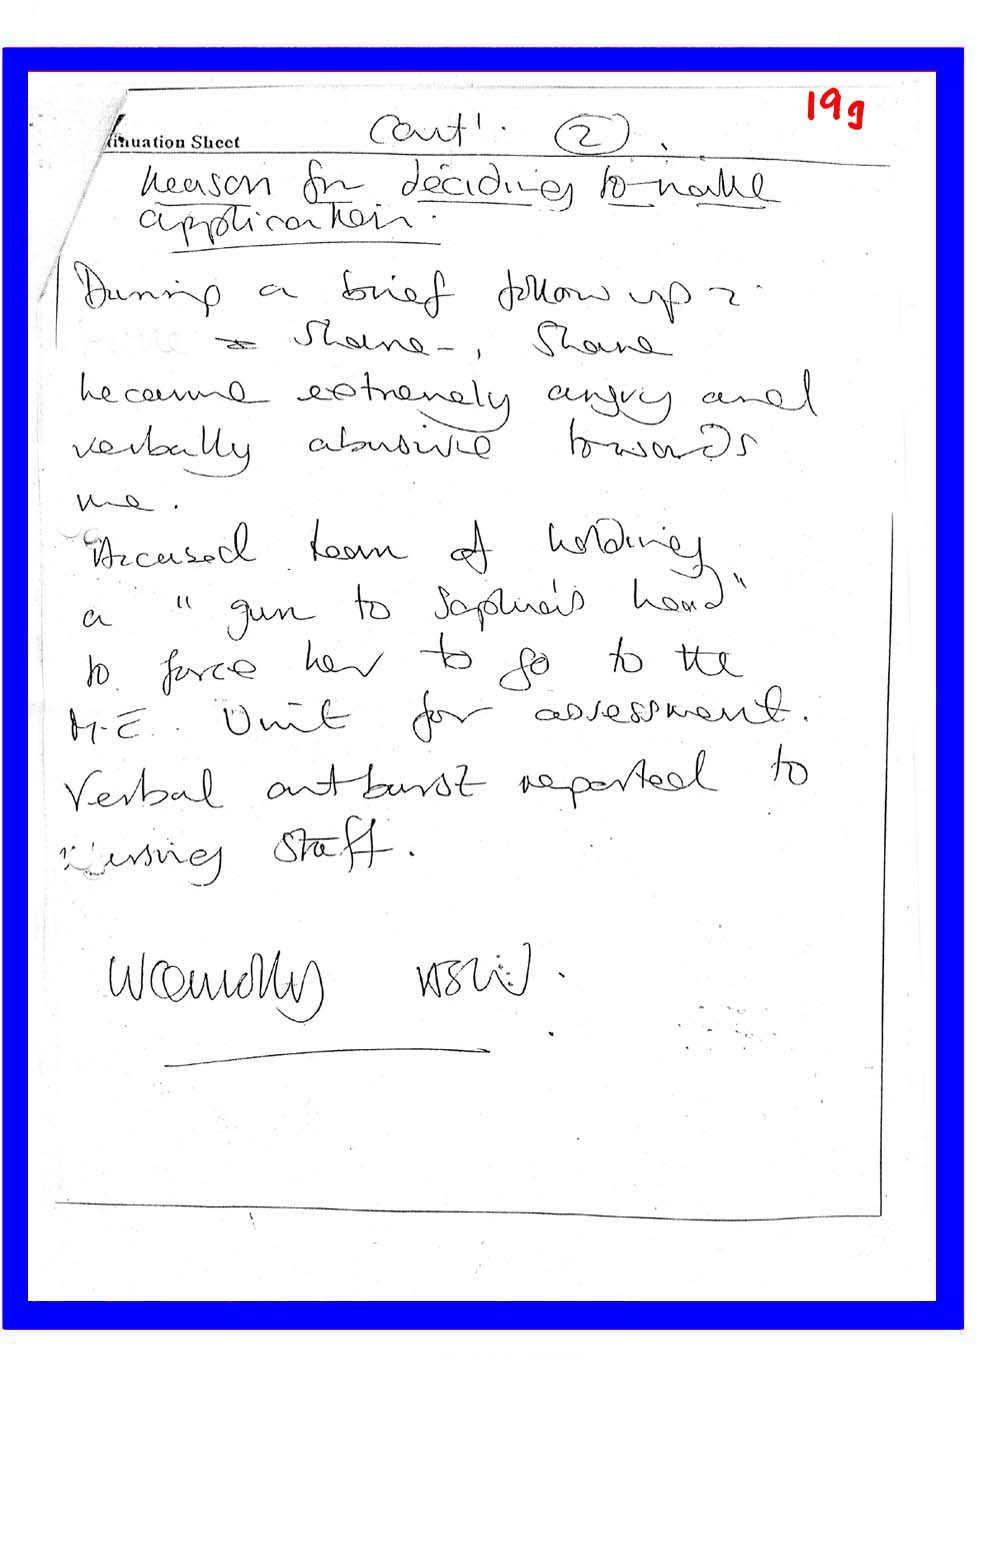 19g
inuation Sheet Cont'. 2.
Reason for deciding to make
application.
During a brief follow up
Shane-, Shane
became extremely angry and
verbally abusive towards
me.
Accused team of holding
a "gun to Sophia's head"
to force her to go to the
M.E. Unit for assessment.
Verbal outburst reported to
nursing staff.
ASW.